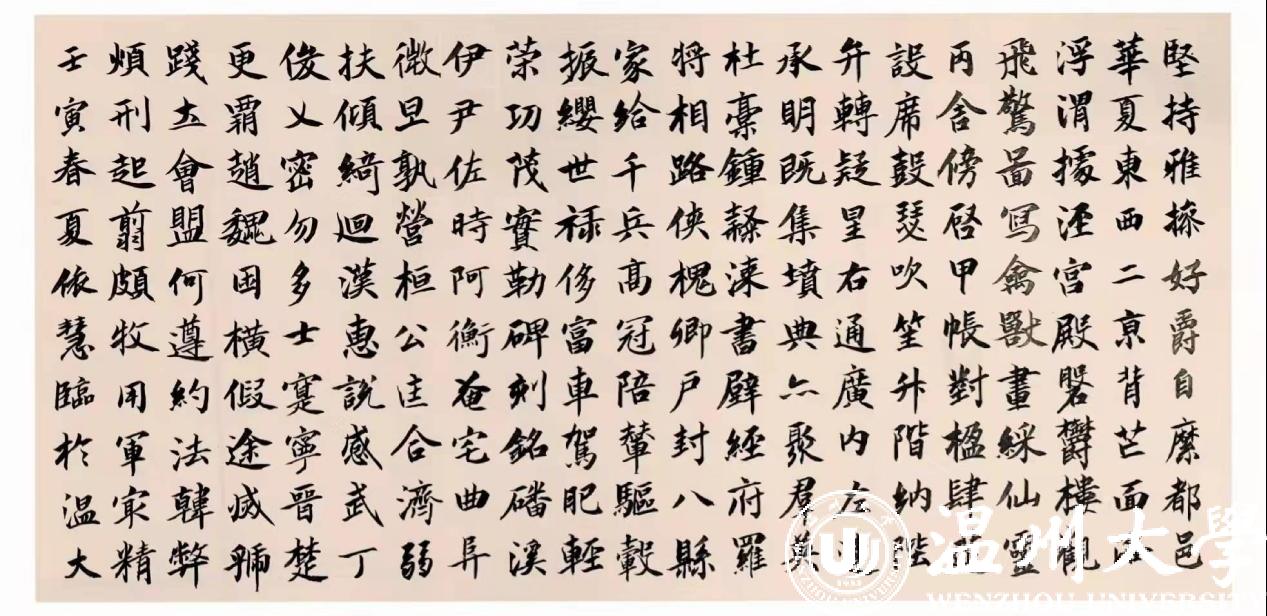 堅持雅操好爵自縻都邑
華夏東西二亰背芒面洛
浮渭據涇宮殿盤鬱樓觀
飛驚啚寫禽獸畫綵仙靈
丙舍傍啓甲帳對楹肆筵
設席鼓瑟吹笙升階納陛
弁轉疑星右通廣内左達
承明既集墳典亦聚群英
杜稾鍾隸漆書壁經府羅
将相路俠槐卿户封八縣
家給千兵高冠陪輦驅轂
振纓世禄侈富車駕肥軽
荣功茂實勒碑刻銘磻溪
伊尹佐時阿衡奄宅曲阜
微旦孰營桓公匡合濟弱
扶傾綺迴漢惠説感武丁
俊乂密勿多士寔寧晉楚
更霸趙魏困横假途滅虢
踐土會盟何遵約法韓弊
煩刑起翦頗牧用軍冣精
壬寅春夏依慧臨於温大
温州大學
WENZHOU UNIVERSITY